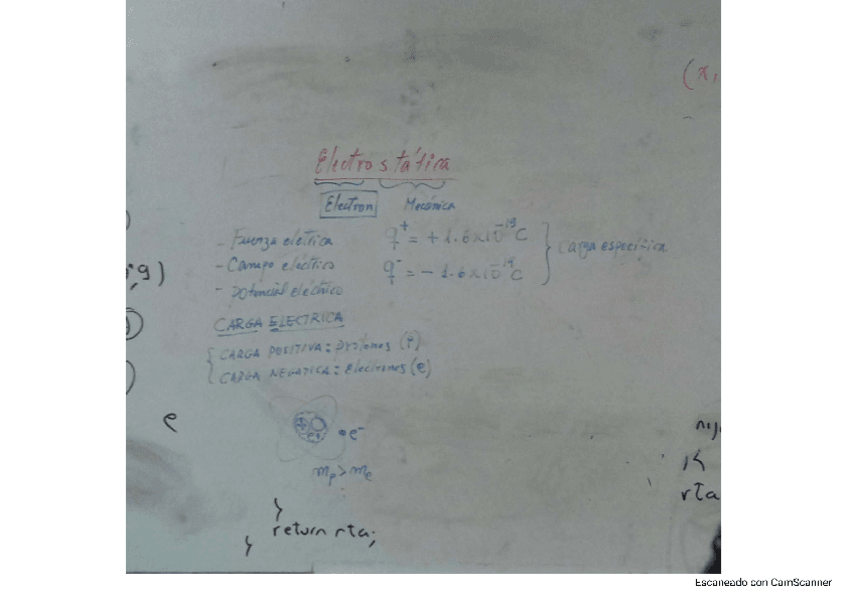 (x,
Electrostática
Electron Mecánica
- Fuerza eletrica q⁺ = + 1.6x10⁻¹⁹ C
- Campo eléctrico q⁻ = - 1.6x10⁻¹⁹ C
carga especifica
- potencial eléctrico
CARGA ELECTRICA
CARGA POSITIVA: protones (P)
CARGA NEGATICA: electrones (e)
e
e+ e⁻
mp > me
}
return rta;
}
rta
Escaneado con CamScanner